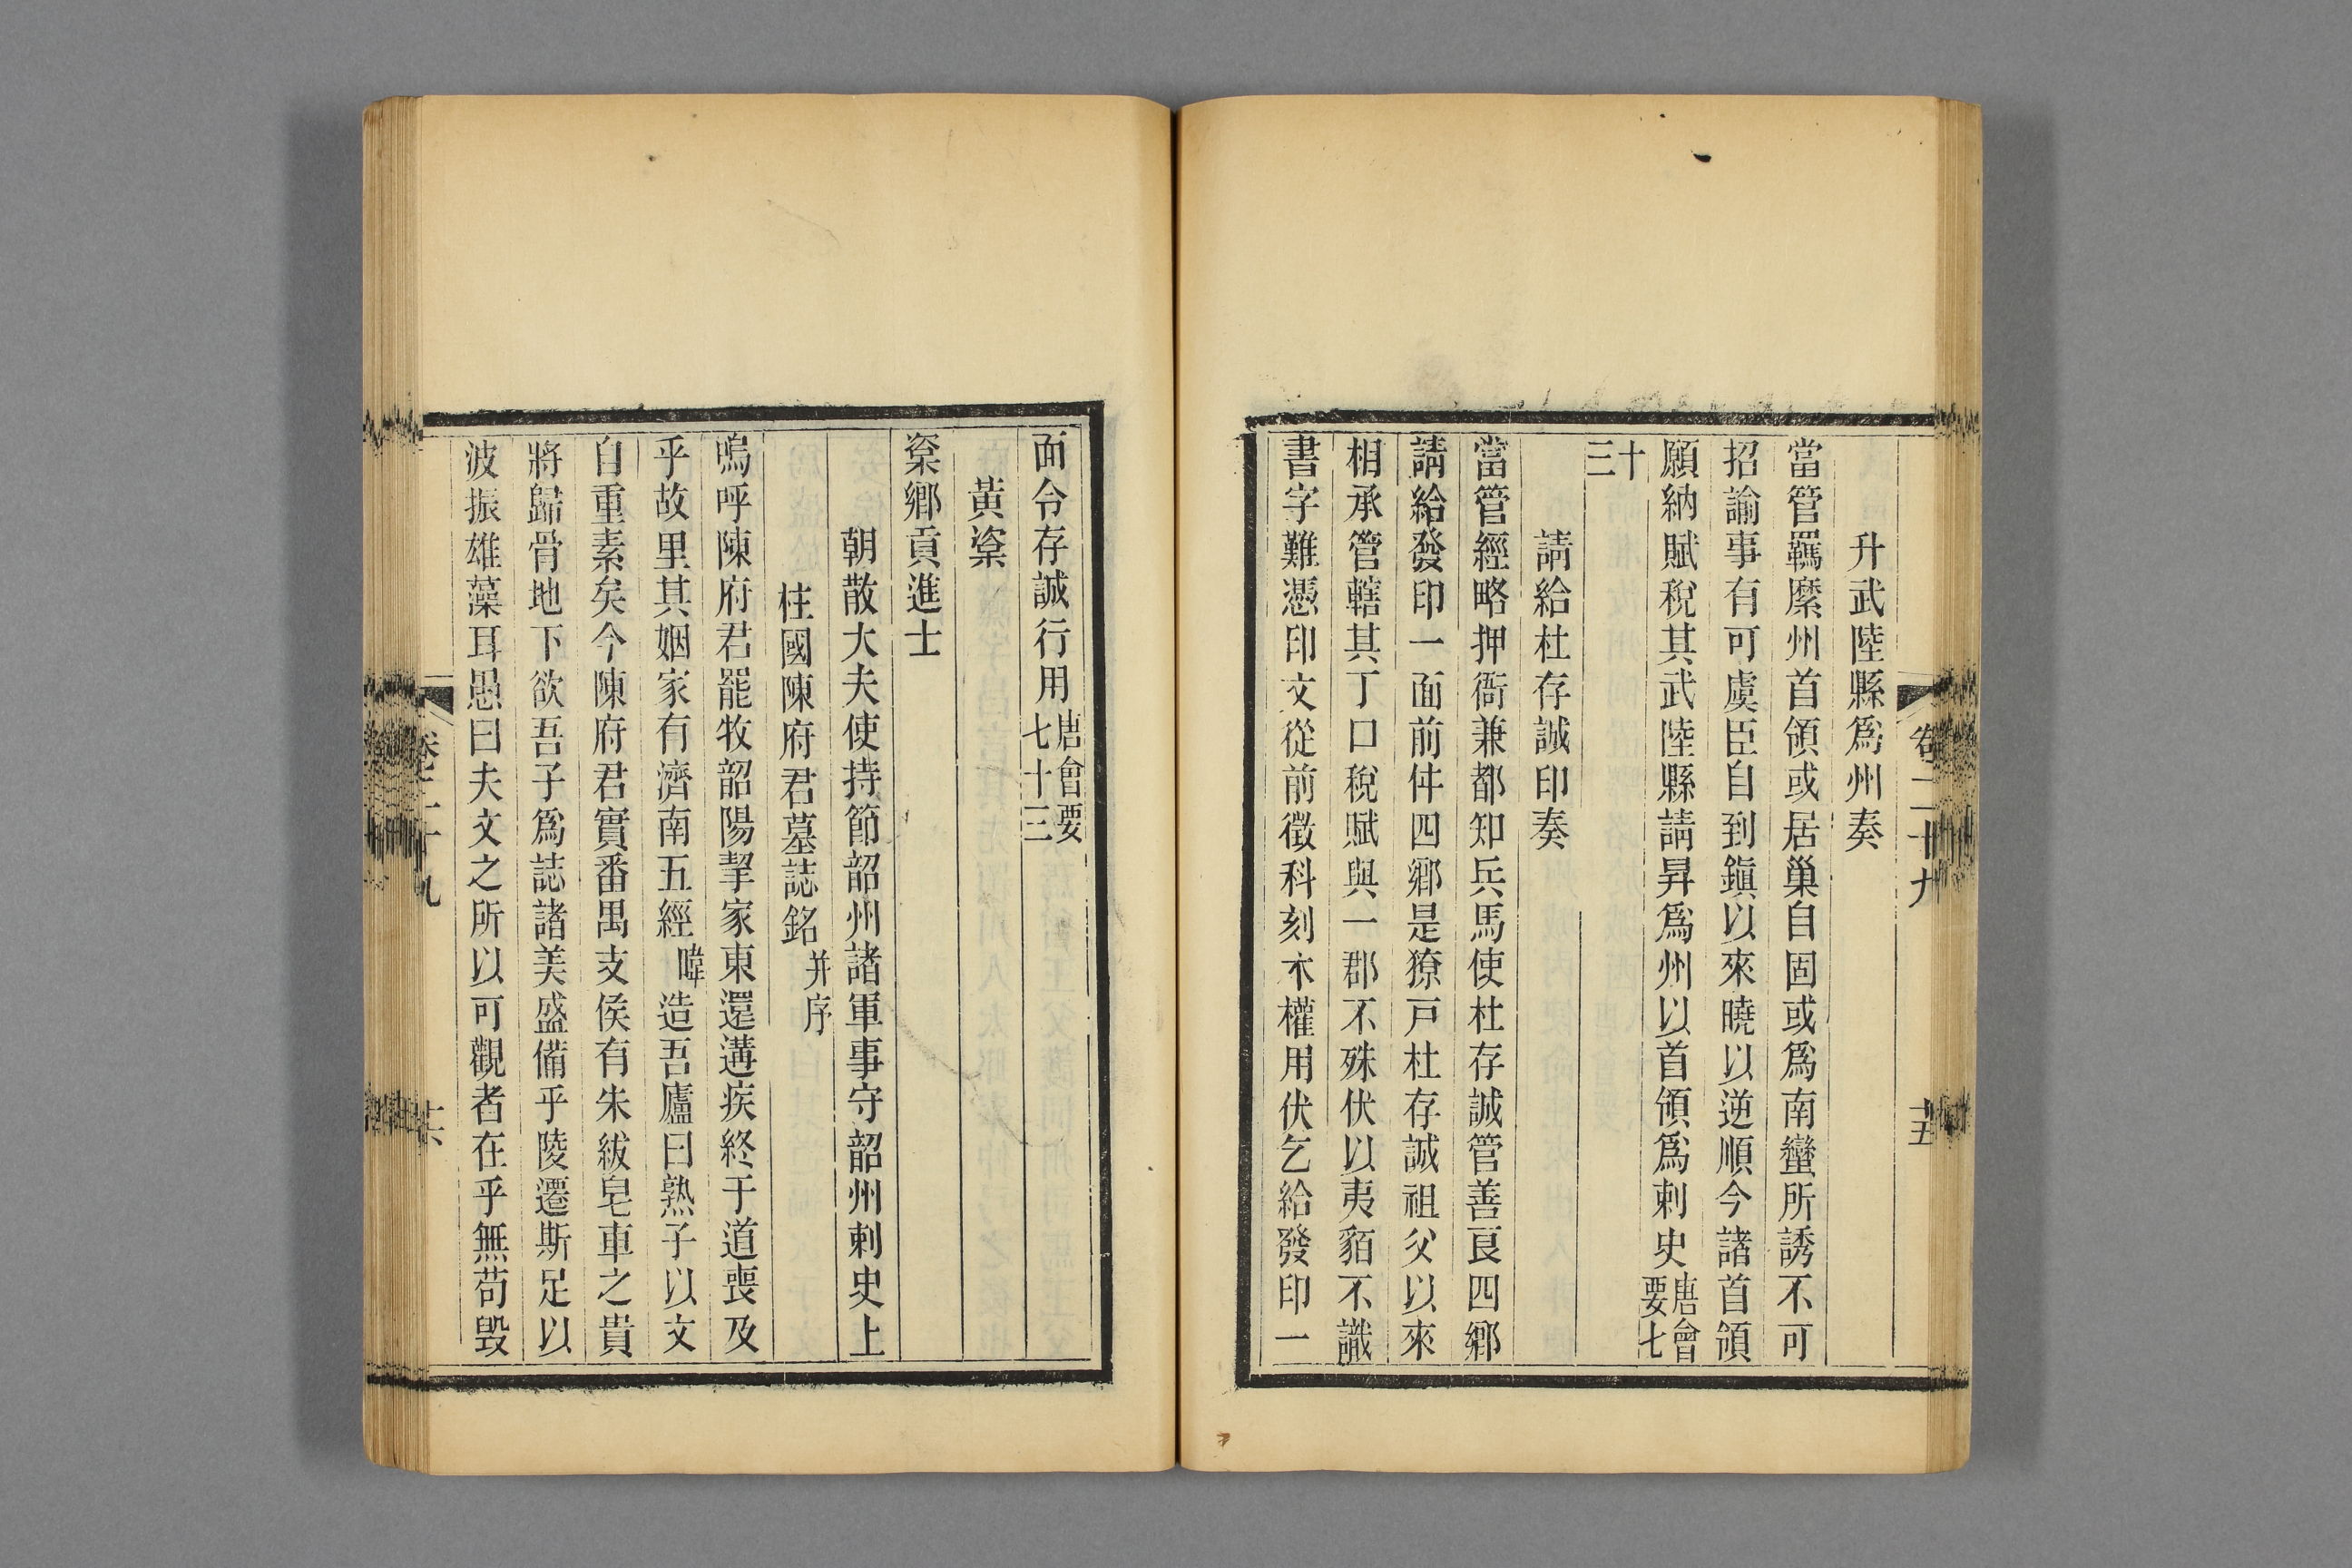 卷二十九
十五
升武陸縣爲州奏
當管羈縻州首領或居巢自固或爲南蠻所誘不可
招諭事有可虞臣自到鎭以來曉以逆順今諸首領
願納賦稅其武陸縣請昇爲州以首領爲刺史唐會要七
十三
請給杜存誠印奏
當管經略押衙兼都知兵馬使杜存誠管善良四鄉
請給發印一面前件四鄉是獠戸杜存誠祖父以來
相承管轄其丁口稅賦與一郡不殊伏以夷貊不識
書字難憑印文從前徵科刻木權用伏乞給發印一
面令存誠行用唐會要七十三
黃楶
楶鄉貢進士
朝散大夫使持節韶州諸軍事守韶州刺史上
柱國陳府君墓誌銘并序
嗚呼陳府君罷牧韶陽挈家東還遘疾終于道喪及
乎故里其姻家有濟南五經暐造吾廬曰熟子以文
自重素矣今陳府君實番禺支侯有朱紱皂車之貴
將歸骨地下欲吾子爲誌諸美盛備乎陵遷斯足以
波振雄藻耳愚曰夫文之所以可觀者在乎無苟毀
卷二十九
十六